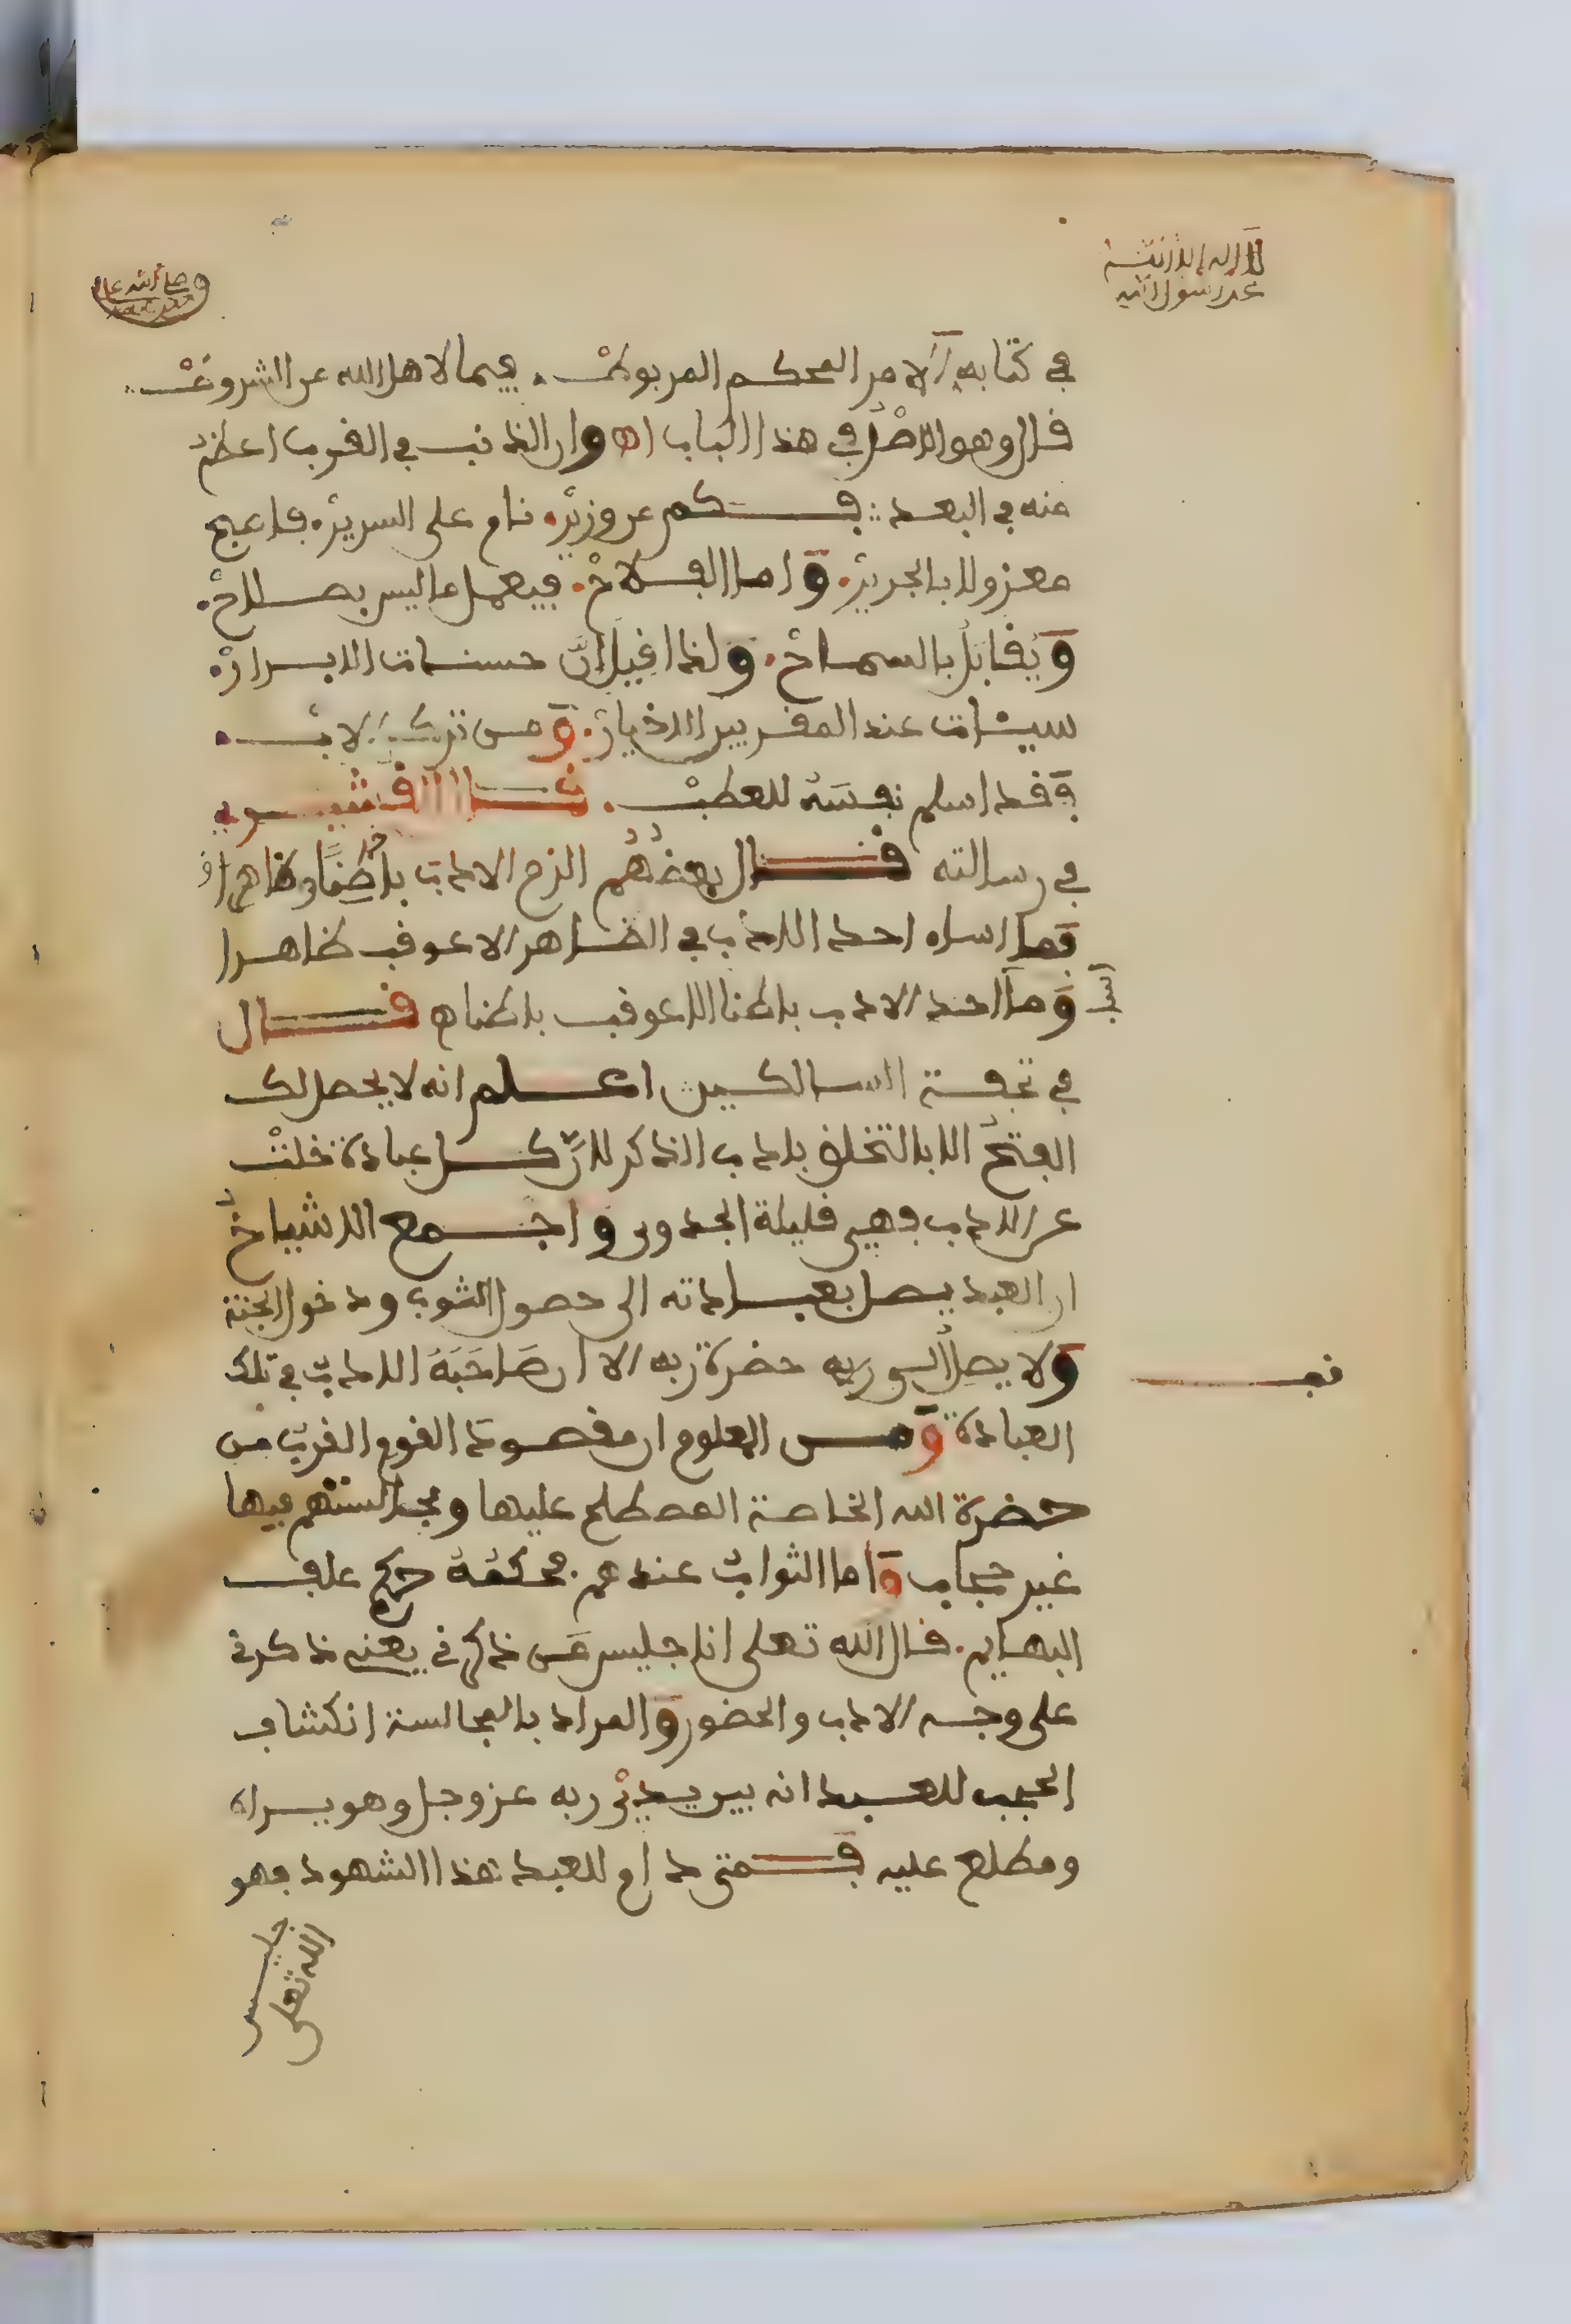 لا اله الا الله
محمد رسول الله
وصلى الله على
في كتابه الامر المحكم المربوط فيما لاهل الله من الشروط
قال وهو الاصل في هذا الباب اه وان الذنب في القرب اعظم
منه في البعد فكم من وزير نام على السرير فاصبح
معزولا بالجرير واما الفلاح فيعمل ما ليس بصلاح
ويقابل بالسماح ولذا قيل ان حسنات الابرار
سيئات عند المقربين الاخيار ومن ترك الادب
فقد اسلم نفسه للعطب قال القشيري
في رسالته قال بعضهم الزم الادب باطنا وظاهرا
فما اساء احد الادب في الظاهر الا عوقب ظاهرا
وما اساء احد الادب باطنا الا عوقب باطنا اه قال
في تحفة السالكين اعلم انه لا يحصل لك
الفتح الا بالتخلق باداب الذكر لان كل عبادة خلت
عن الادب فهي قليلة الجدوى واجمع الاشياخ
ان العبد يصل بعبادته الى حصول الثواب ودخول الجنة
ولا يصل الى حضرة ربه الا ان صاحبه الادب في تلك
قف
العبادة ومن المعلوم ان مقصود القوم القرب من
حضرة الله الخاصة المصطلح عليها ومجالستهم فيها
غير حجاب واما الثواب عندهم فحكمه حكم علف
البهايم قال الله تعلى انا جليس من ذكرني يعني ذكرني
على وجه الادب والحضور والمراد بالمجالسة انكشاف
الحجب للعبد انه بين يدي ربه عز وجل وهو يراه
ومطلع عليه فمتى دام للعبد هذا الشهود فهو
جليس
الله تعلى